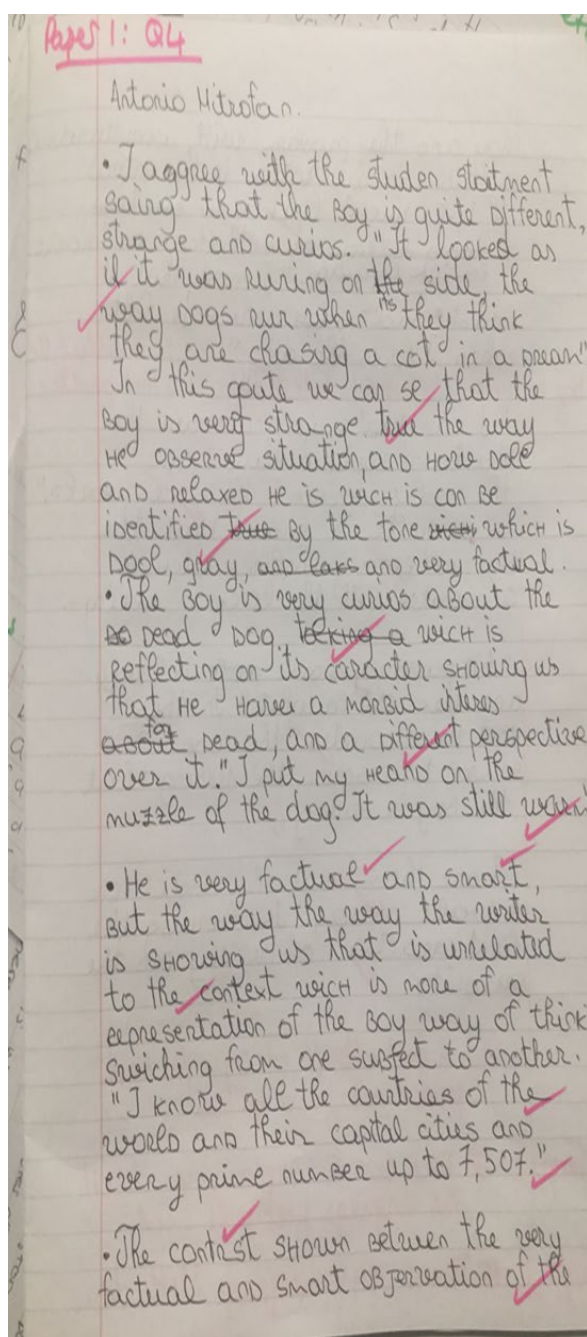 Paper 1: Q4
Antonio Mitrofan.
• I aggree with the studen stoitment
saing that the Boy is quite different,
strange and curios. "It looked as
if it was runing on the side, the
way dogs run when its they think
they are chasing a cat in a dream"
In this qoute we can se that the
Boy is very strange true the way
He observe situation, and How dole
and relaxed He is wich is can Be
identified true By the tone wich which is
Dool, gray, and laks and very factual.
• The Boy is very curios about the
do Dead Dog, tacking a wich is
Reflecting on its caracter showing us
that He Haves a morbid interes
about for Dead, and a different perspective
over it. "I put my Heand on the
muzzle of the dog. It was still warm"
• He is very factual and smart,
But the way the way the writer
is showing us that is unrelated
to the context wich is more of a
representation of the Boy way of think
swiching from one subject to another.
"I know all the countries of the
world and their capital cities and
every prime number up to 7,507."
• The contast shown Betwen the very
factual and smart observation of the